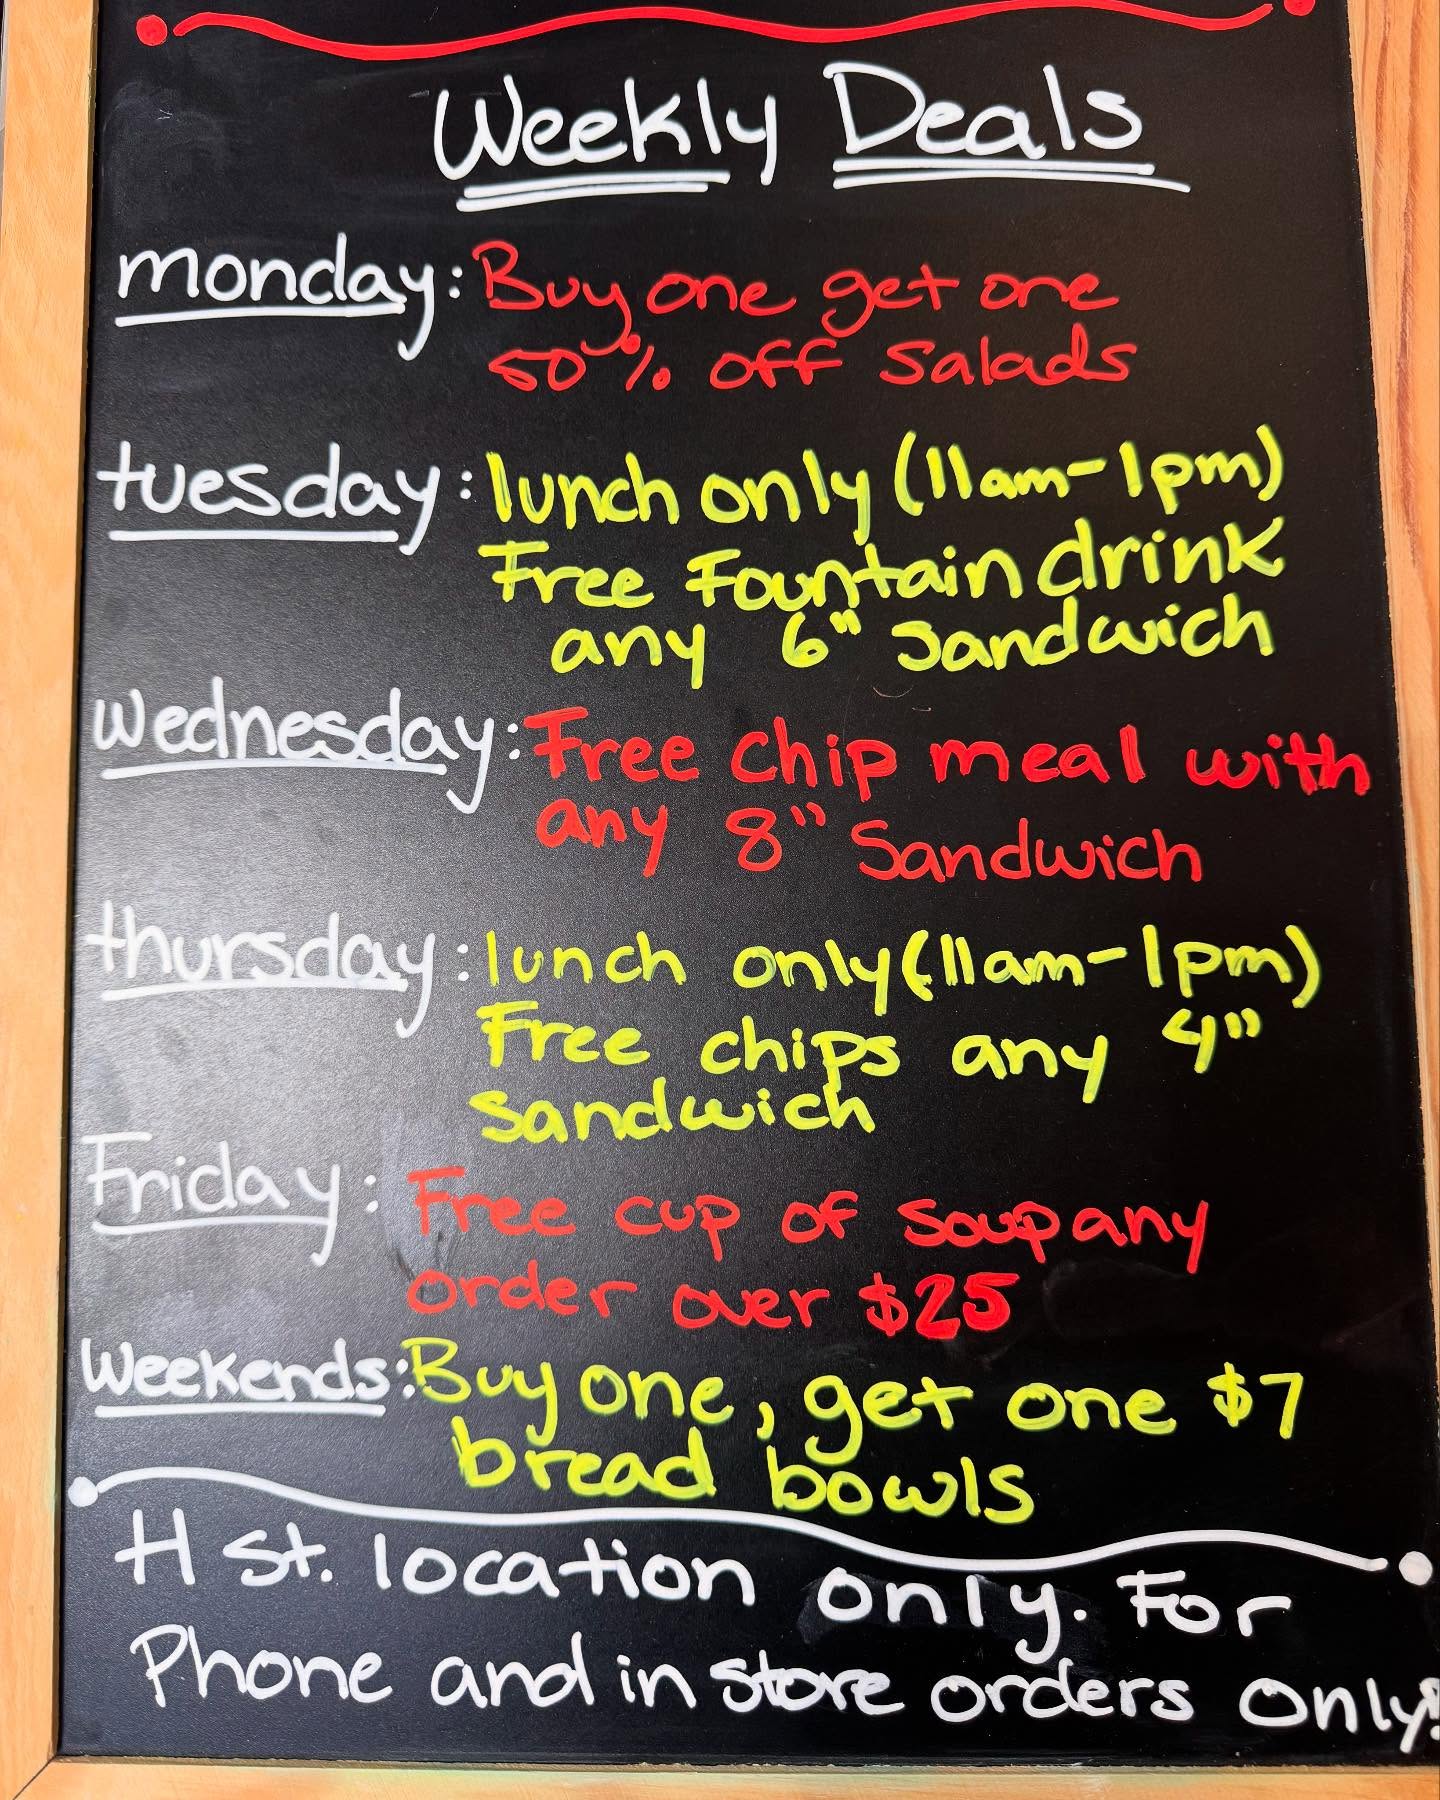 Weekly Deals
monday: Buy one get one
50% off Salads
tuesday: lunch only (11am-1pm)
Free Fountain drink
any 6" Sandwich
Wednesday: Free chip meal with
any 8" Sandwich
thursday: lunch only (11am-1pm)
Free chips any 4"
Sandwich
Friday: Free cup of soup any
order over $25
Weekends: Buy one, get one $7
bread bowls
H st. location only. For
Phone and in store orders only!